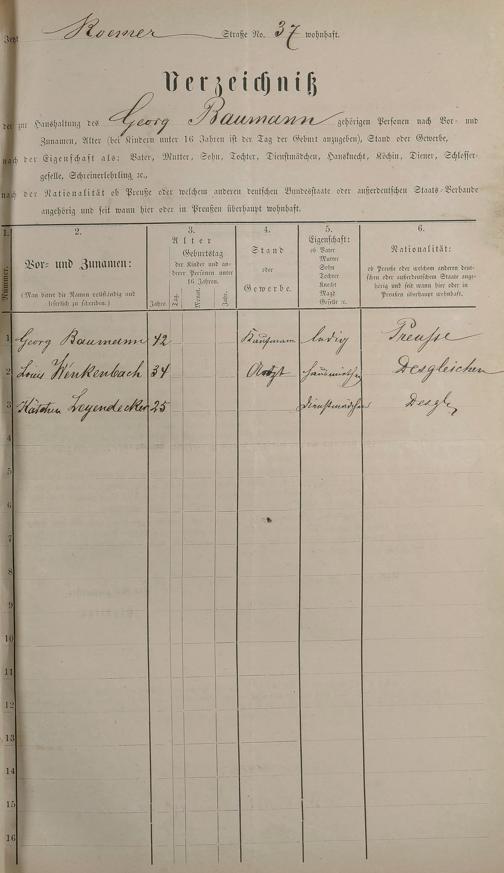 Jetzt Roemer Straße No. 37 wohnhaft.
Verzeichniß
der zur Haushaltung des Georg Baumann gehörigen Personen nach Vor- und
Zunamen, Alter (bei Kindern unter 16 Jahren ist der Tag der Geburt anzugeben), Stand oder Gewerbe,
nach der Eigenschaft als: Vater, Mutter, Sohn, Tochter, Dienstmädchen, Hausknecht, Köchin, Diener, Schlosser-
geselle, Schreinerlehrling ꝛc.,
nach der Nationalität ob Preuße oder welchem anderen deutschen Bundesstaate oder außerdeutschen Staats-Verbande
angehörig und seit wann hier oder in Preußen überhaupt wohnhaft.
1. 2. 3. 4. 5. 6.
Nummer.
Vor- und Zunamen:
(Man bittet die Namen vollständig und
leserlich zu schreiben.)
Alter
Geburtstag
der Kinder und an-
derer Personen unter
16 Jahren.
Jahre. Tag. Monat. Jahr.
Stand
oder
Gewerbe.
Eigenschaft:
ob Vater
Mutter
Sohn
Tochter
Knecht
Magd
Geselle ꝛc.
Nationalität:
ob Preuße oder welchem anderen deut-
schen oder außerdeutschen Staate ange-
hörig und seit wann hier oder in
Preußen überhaupt wohnhaft.
1 Georg Baumann 42 Kaufmann ledig Preusse
2 Louis Wenkenbach 34 Arzt Desgleichen
3 Kätchen Leyendecker 25 Dienstmädchen Desgl.
4
5
6
7
8
9
10
11
12
13
14
15
16